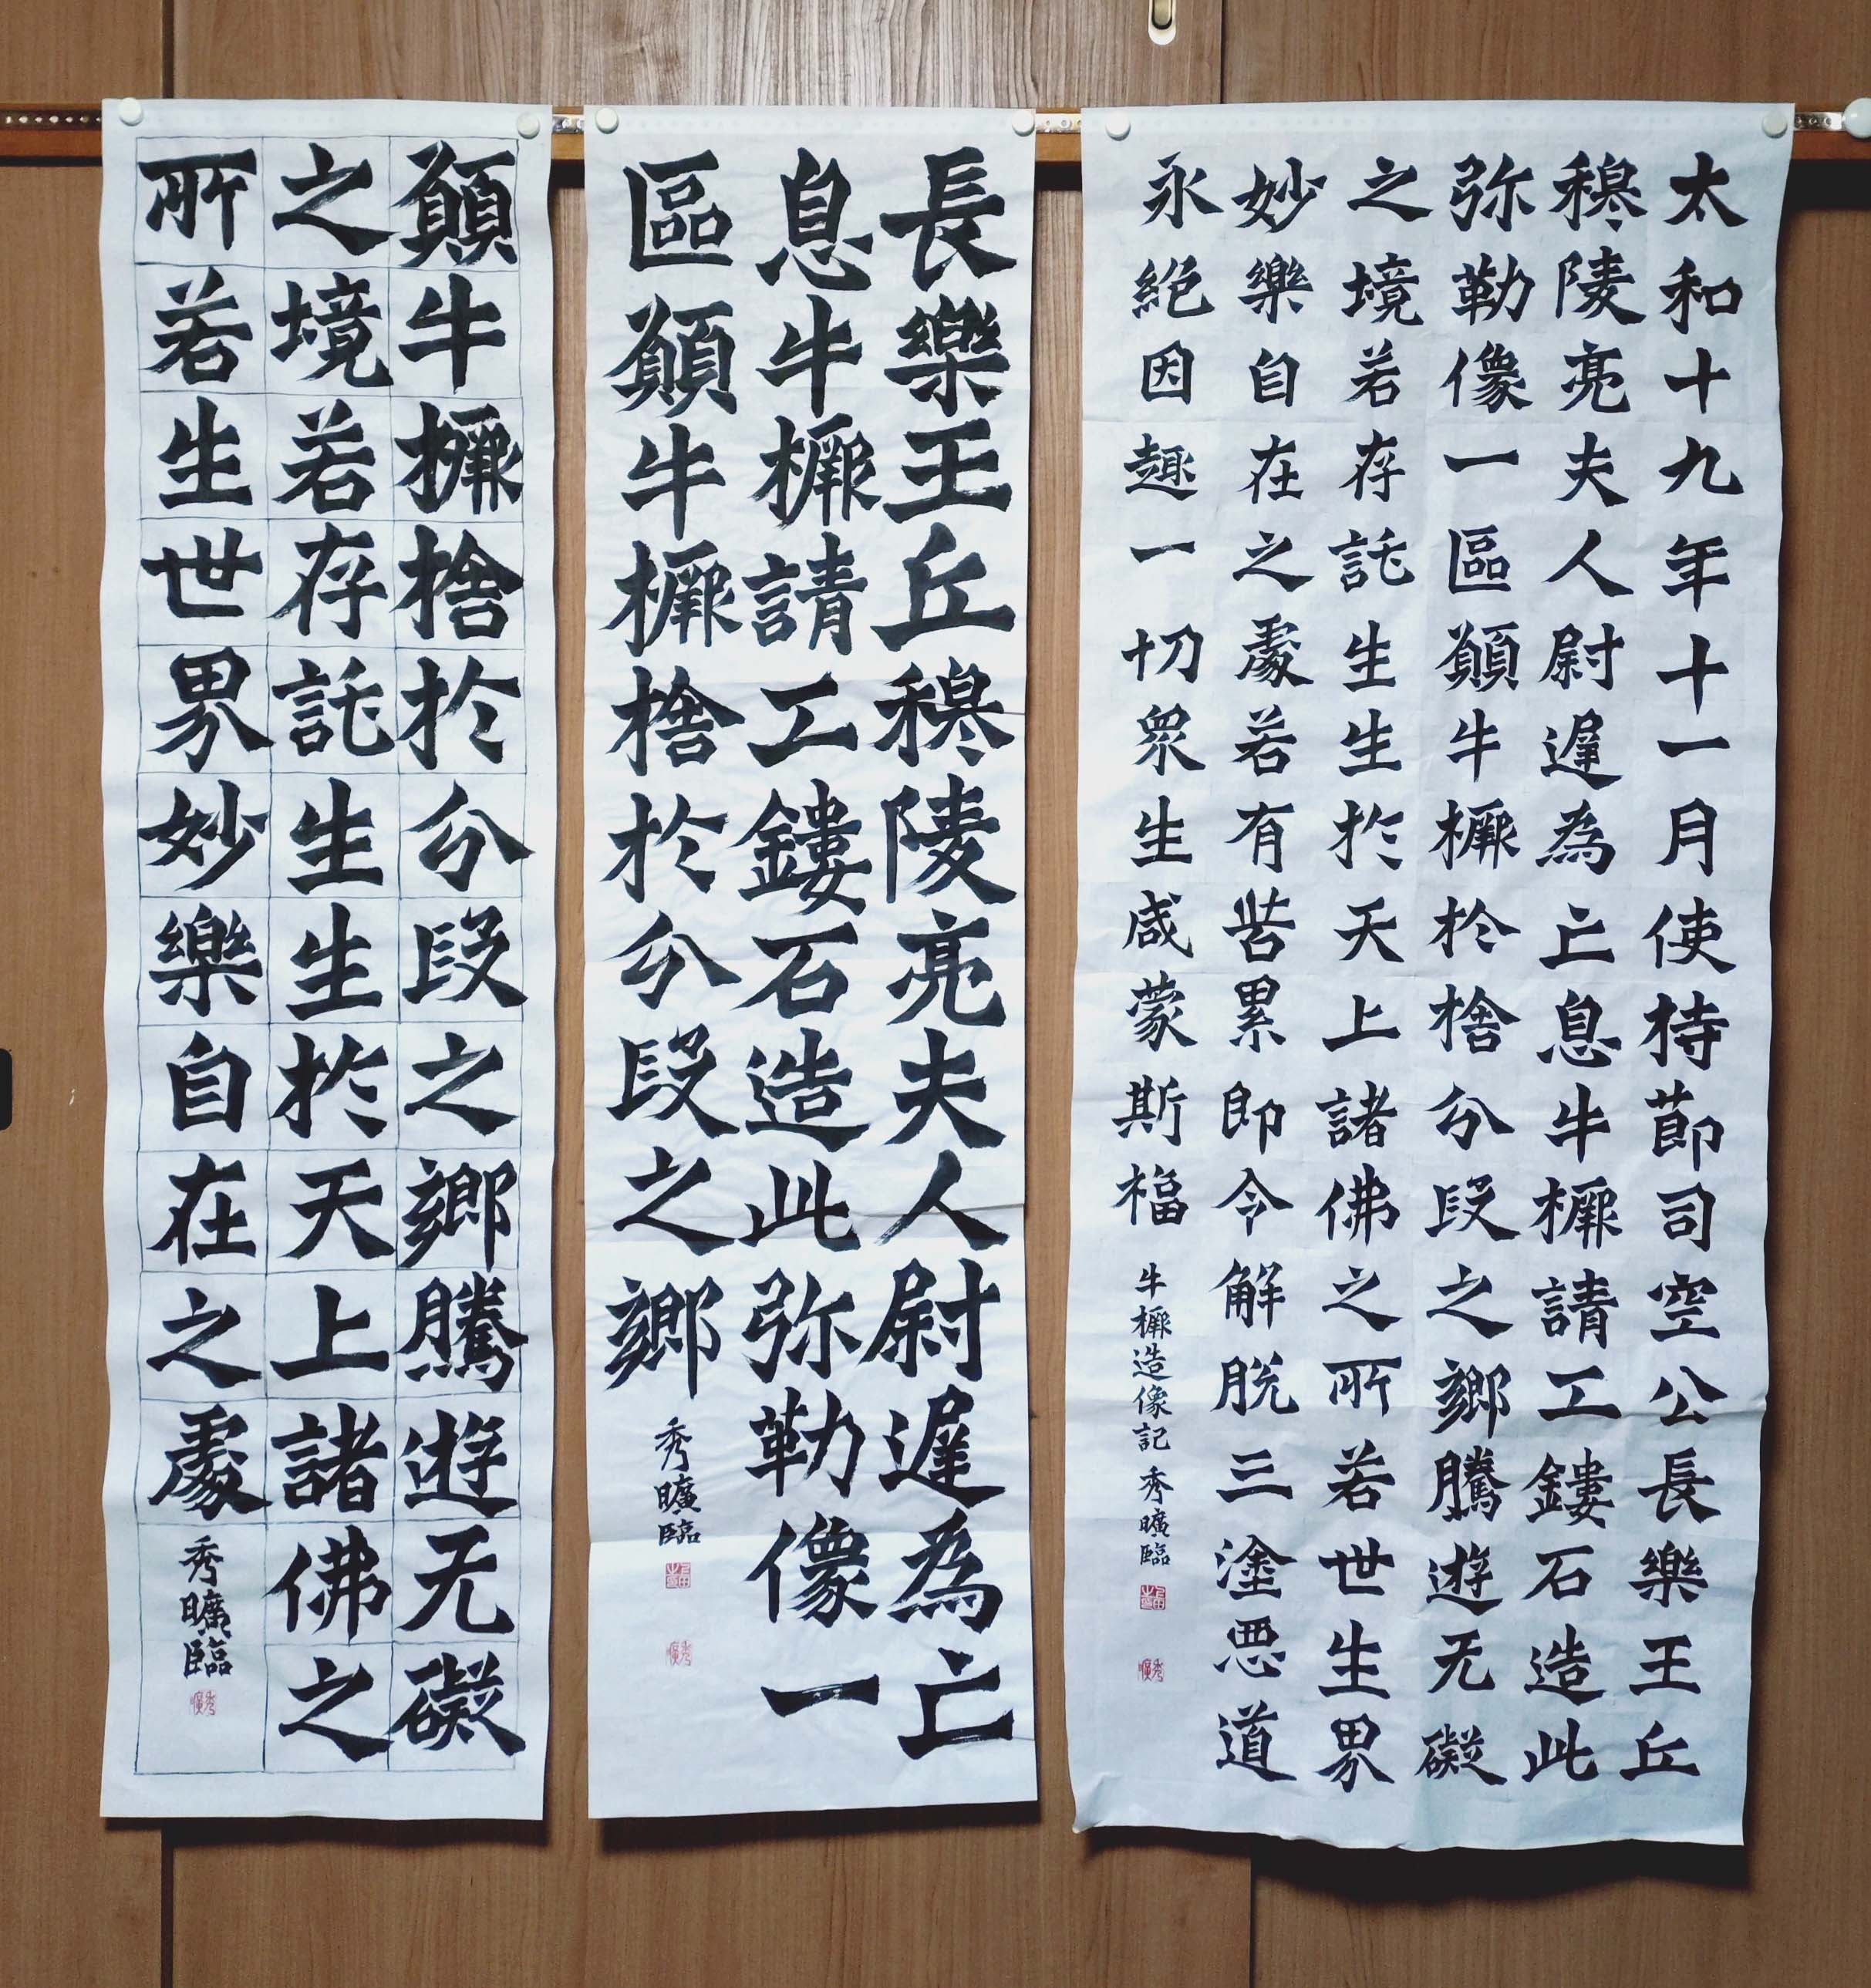 太和十九年十一月使持節司空公長樂王丘
穆陵亮夫人尉遲為亡息牛橛請工鏤石造此
弥勒像一區願牛橛於捨分段之鄉騰遊无礙
之境若存託生生於天上諸佛之所若世生界
妙樂自在之處若有苦累即令解脫三塗惡道
永絕因趣一切眾生咸蒙斯福
牛橛造像記 秀曠臨
長樂王丘穆陵亮夫人尉遲為亡
息牛橛請工鏤石造此弥勒像一
區願牛橛捨於分段之鄉
秀曠臨
願牛橛捨於分段之鄉騰遊无礙
之境若存託生生於天上諸佛之
所若生世界妙樂自在之處
秀曠臨